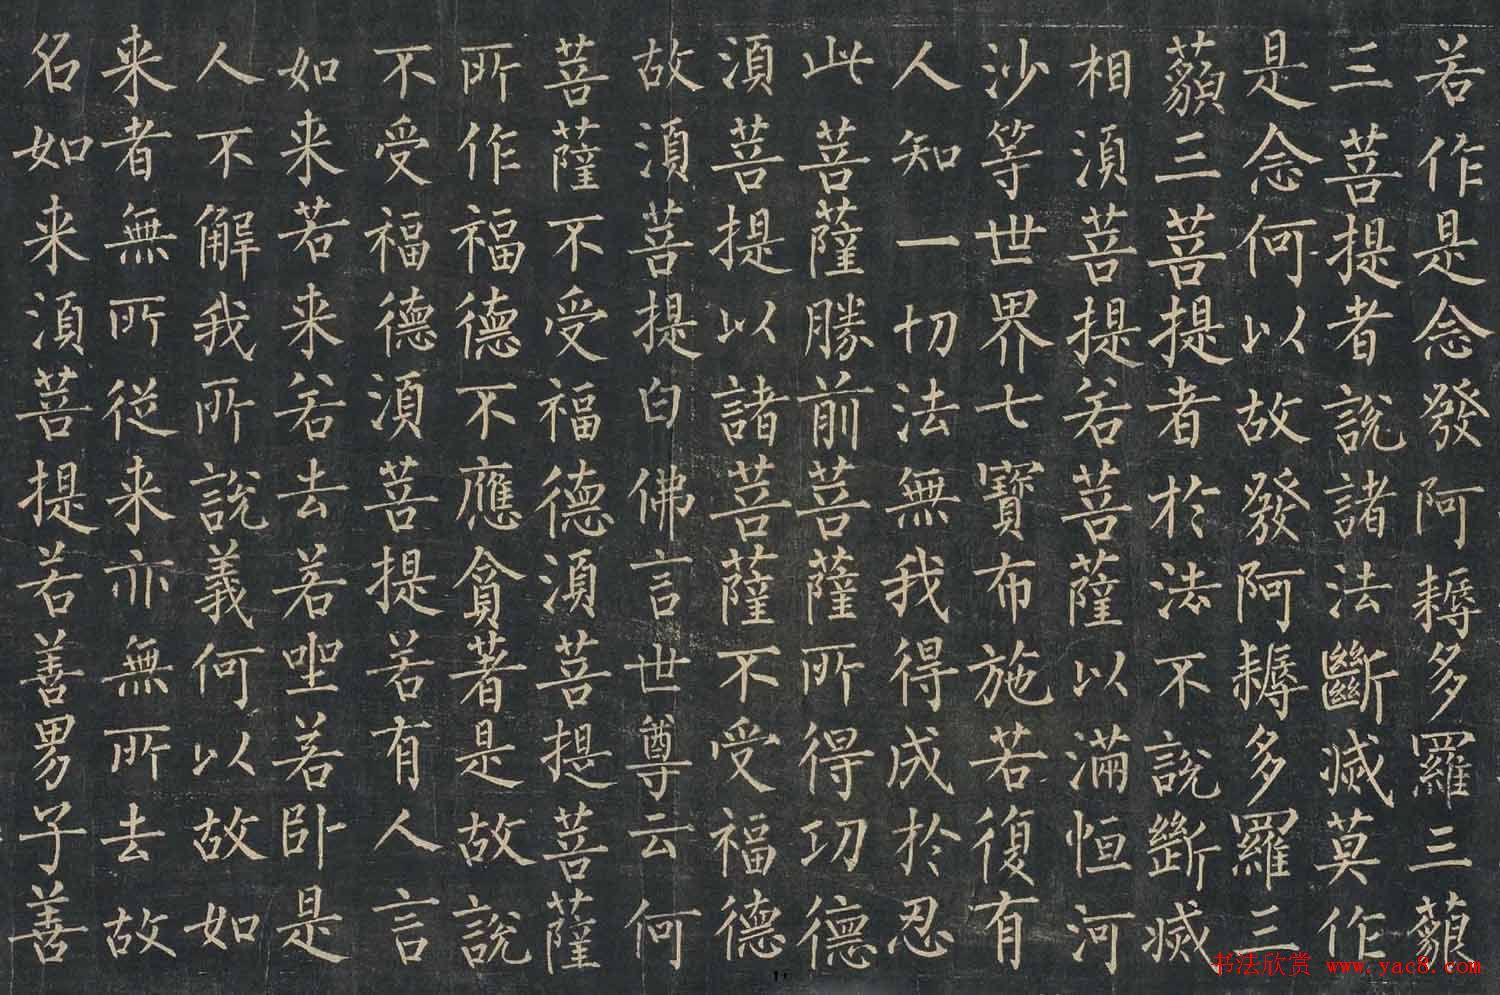 若作是念發阿耨多羅三藐
三菩提者說諸法斷滅莫作
是念何以故發阿耨多羅三
藐三菩提者於法不說斷滅
相須菩提若菩薩以滿恒河
沙等世界七寶布施若復有
人知一切法無我得成於忍
此菩薩勝前菩薩所得功德
須菩提以諸菩薩不受福德
故須菩提白佛言世尊云何
菩薩不受福德須菩提菩薩
所作福德不應貪著是故說
不受福德須菩提若有人言
如来若来若去若坐若卧是
人不解我所說義何以故如
来者無所從来亦無所去故
名如来須菩提若善男子善
书法欣赏 www.yac8.com